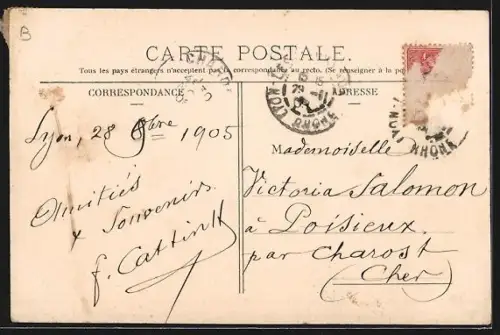 B
CARTE POSTALE.
Tous les pays étrangers n'acceptent pas la correspondance au recto. (Se renseigner à la poste
CORRESPONDANCE
ADRESSE
LYON
RHÔNE
RHÔNE
Lyon, 28 8bre 1905
Amitiés
& Souvenirs
Mademoiselle
Victoria Salomon
à Poisieux
par Charost
(Cher)